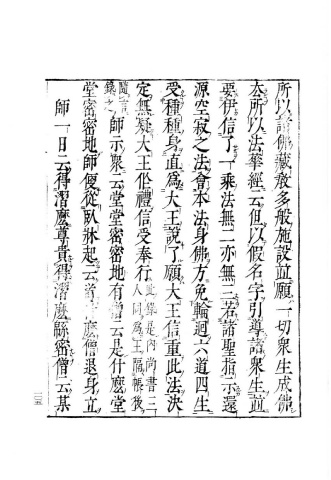 所以諸佛藏教多般施設並願一切衆生成佛
去所以法華經云但以假名字引導諸衆生並
要伊信了一乘法無二亦無三若諸聖指示還
源空寂之法會本法身佛方免輪迴六道四生
受種種身直爲大王說了願大王信重此法決
定無疑大王作禮信受奉行此錄是内尚書三人同爲王隔帳後
隨言錄之師示衆云堂堂密密地有僧云是什麽堂
堂密密地師便從臥牀起云道什麽僧退身立
師一日云得溍麽尊貴得溍麽緜密僧云某
二五